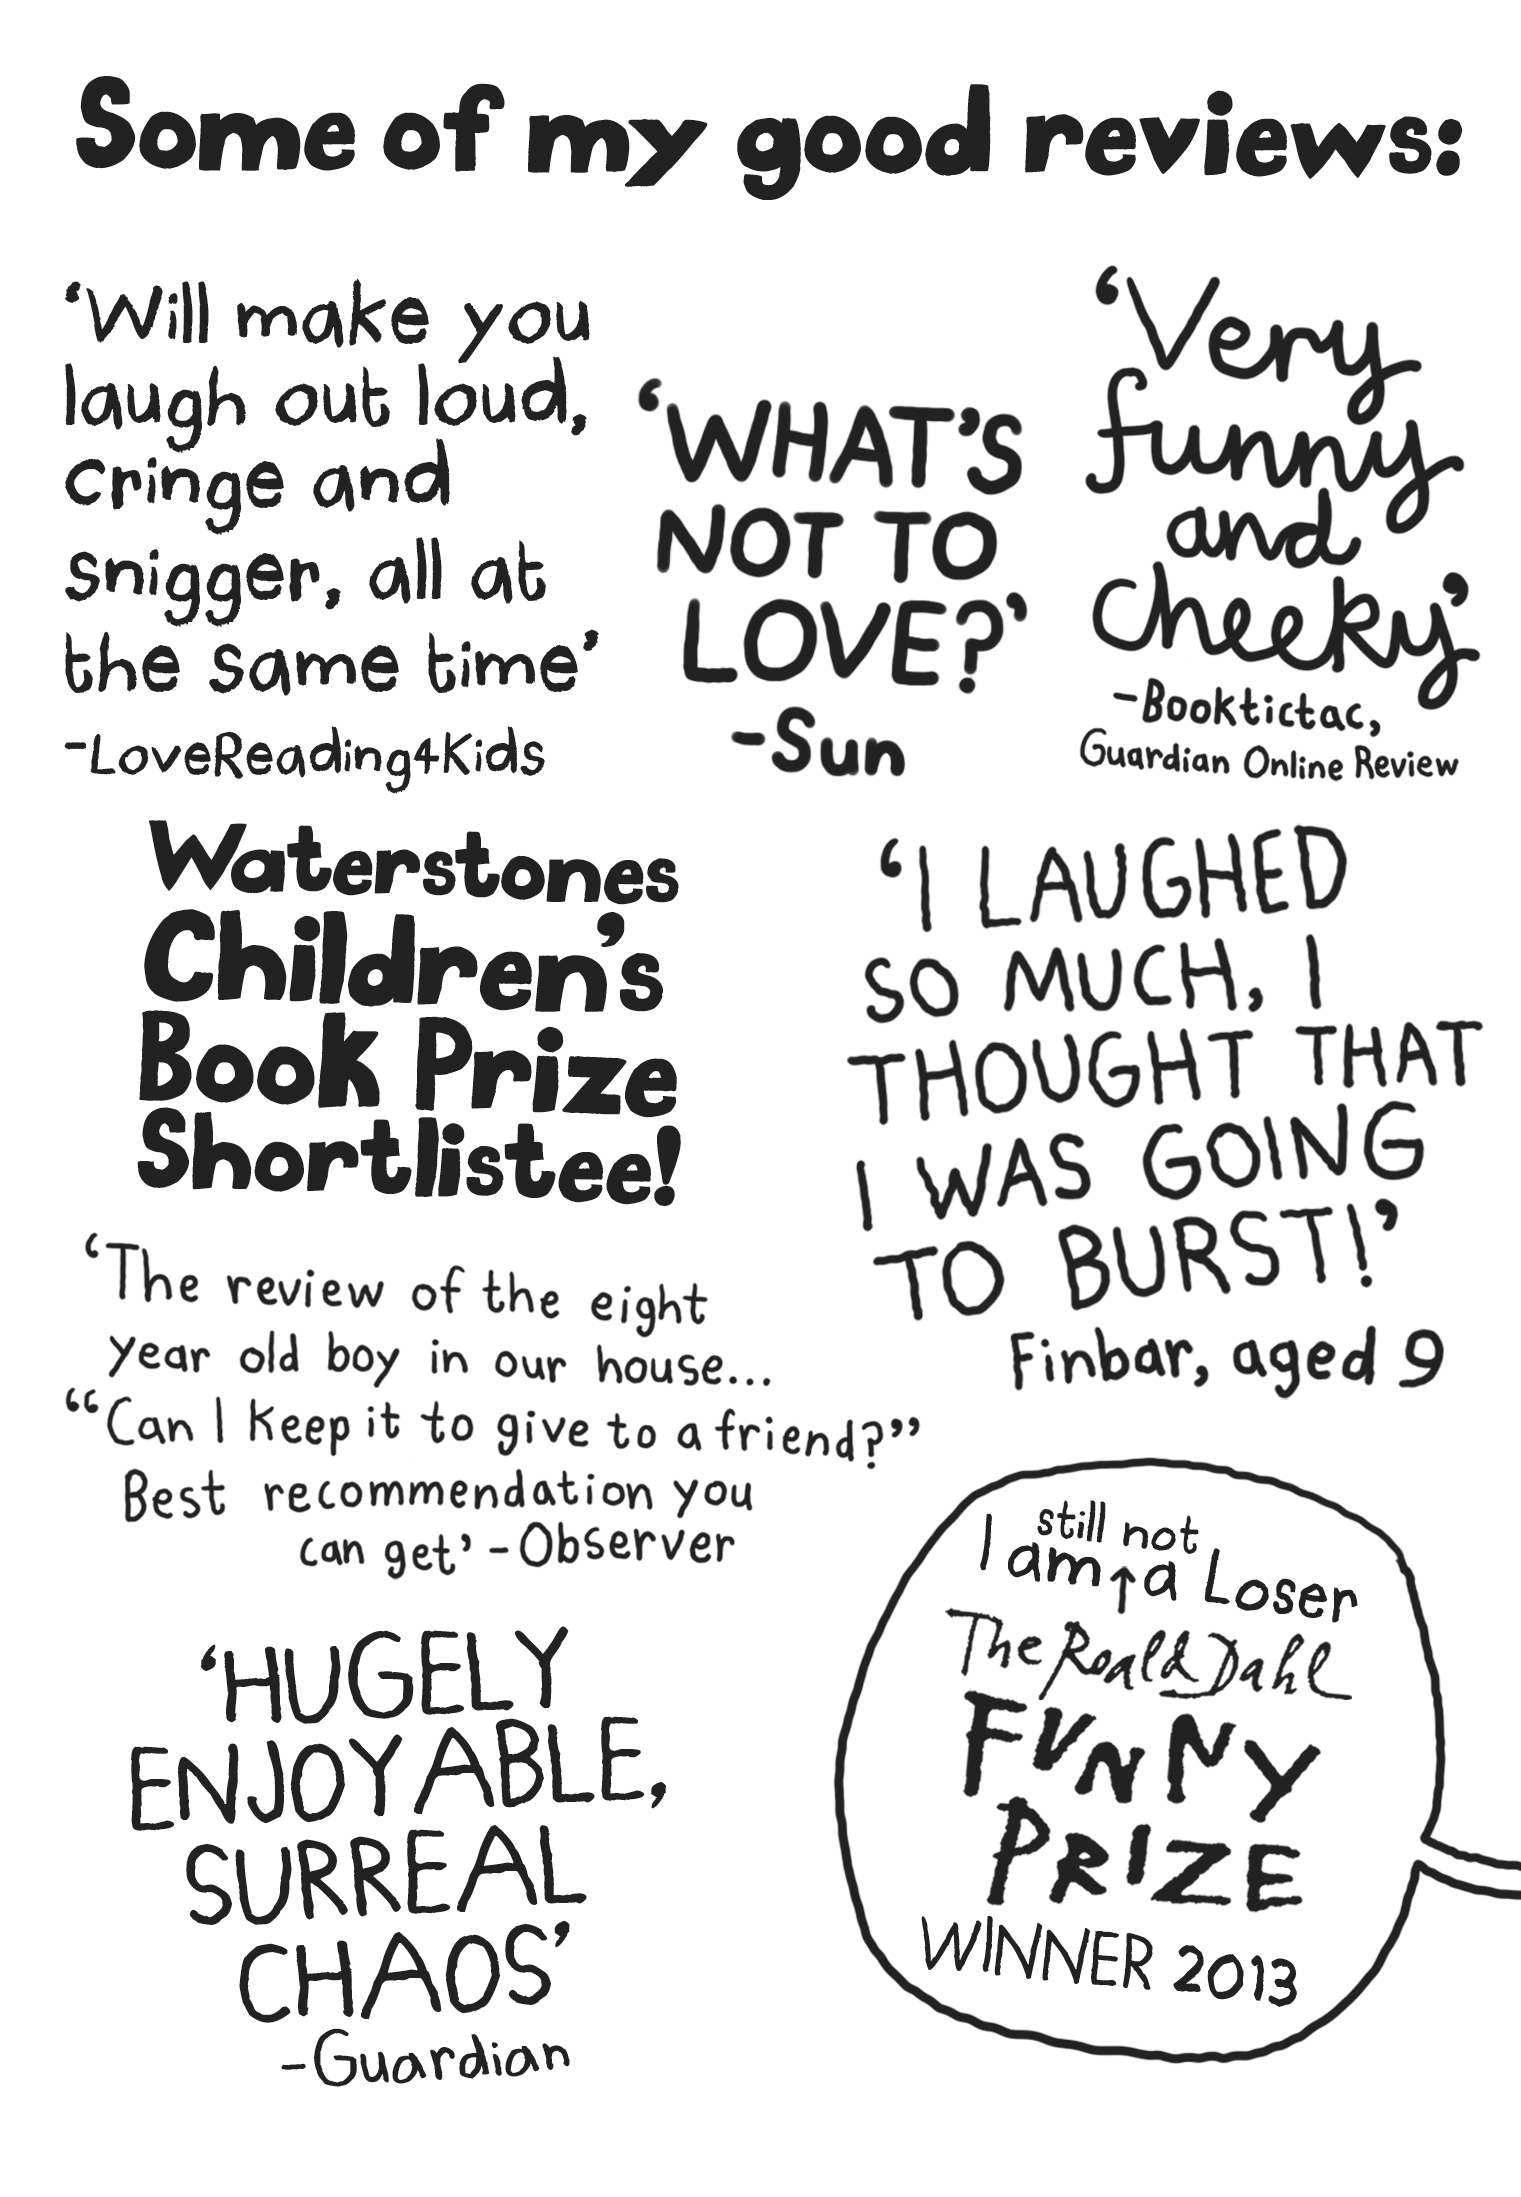 Some of my good reviews:
‘Will make you
laugh out loud,
cringe and
snigger, all at
the same time’
-LoveReading4Kids
‘WHAT’S
NOT TO
LOVE?’
-Sun
‘Very
funny
and
cheeky’
-Booktictac,
Guardian Online Review
Waterstones
Children’s
Book Prize
Shortlistee!
‘I LAUGHED
SO MUCH, I
THOUGHT THAT
I WAS GOING
TO BURST!’
Finbar, aged 9
‘The review of the eight
year old boy in our house...
“Can I keep it to give to a friend?”
Best recommendation you
can get’ - Observer
‘HUGELY
ENJOYABLE,
SURREAL
CHAOS’
-Guardian
still not
I am ↑ a Loser
The Roald Dahl
FUNNY
PRIZE
WINNER 2013